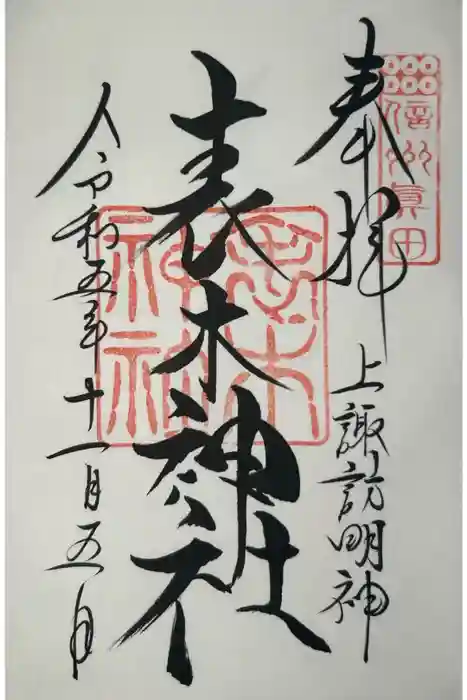 信州眞田
奉拝
上諏訪明神
表木神社
表木神社
令和五年十一月五日